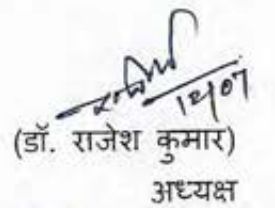 12/07
(डॉ. राजेश कुमार)
अध्यक्ष